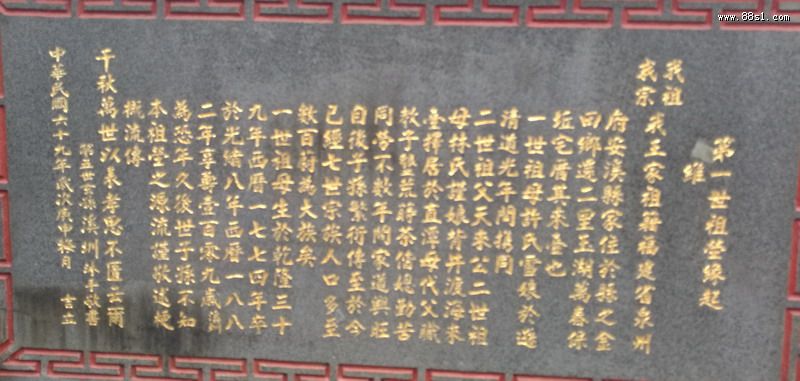 www.88s1.com
第一世祖塋緣起
維
我祖
我宗 我王家祖籍福建省泉州
府安溪縣家住於縣之金
田鄉選二里玉湖萬春保
坵宅厝其來臺也
一世祖母許氏雪緣於遜
清道光年間携同
二世祖父天來公二世祖
母林氏謹娘背井渡海來
臺擇居於直潭母代父職
教子墾荒時茶信媳勤苦
同勞不數年間家道興旺
自後子孫繁衍傳至於今
已經七世宗族人口多至
數百尉為大族矣
一世祖母生於乾隆三十
九年西曆一七七四年卒
於光緒八年西曆一八八
二年享壽壹百零九歲
為恐年久後世子孫不知
本祖塋之源流謹敬述梗
概流傳
千秋萬世以奉孝思不匱云爾
第五世玄孫溪圳沐手敬書
中華民國六十九年歲次庚申梅月 吉立